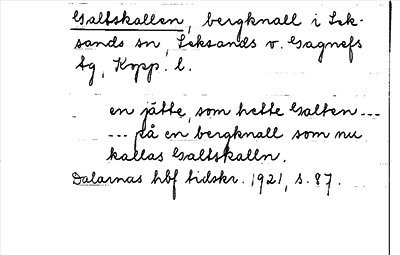 Galtskallen, bergknall i Lek-
sands sn, Leksands o. Gagnefs
tg, Kopp. l.
en jätte, som hette Galten ---
--- på en bergknall som nu
kallas Galtskalln.
Dalarnas hbf tidskr. 1921, s. 87.